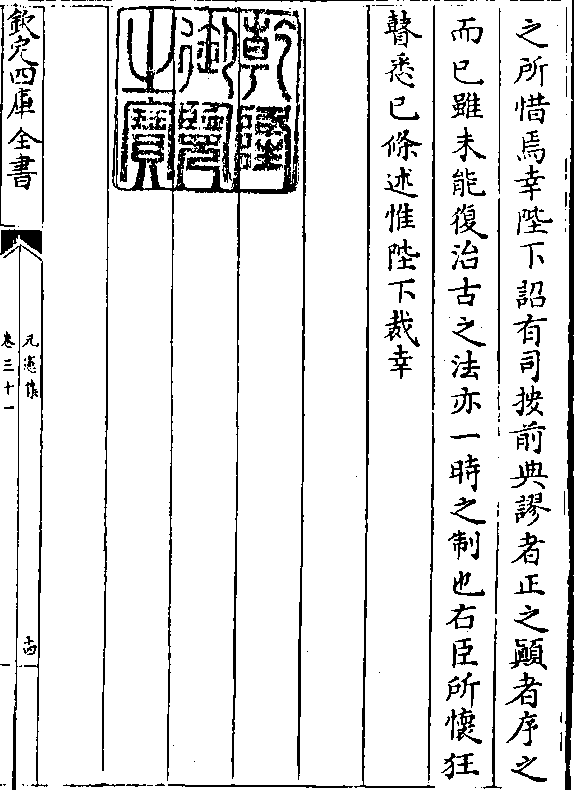 之所惜焉幸陛下詔有司按前典謬者正之顚者序之
而已雖未能復治古之法亦一時之制也右臣所懷狂
瞽悉已條述惟陛下裁幸
乾隆
御覽
之寶
欽定四庫全書
元憲集
卷三十一
十四